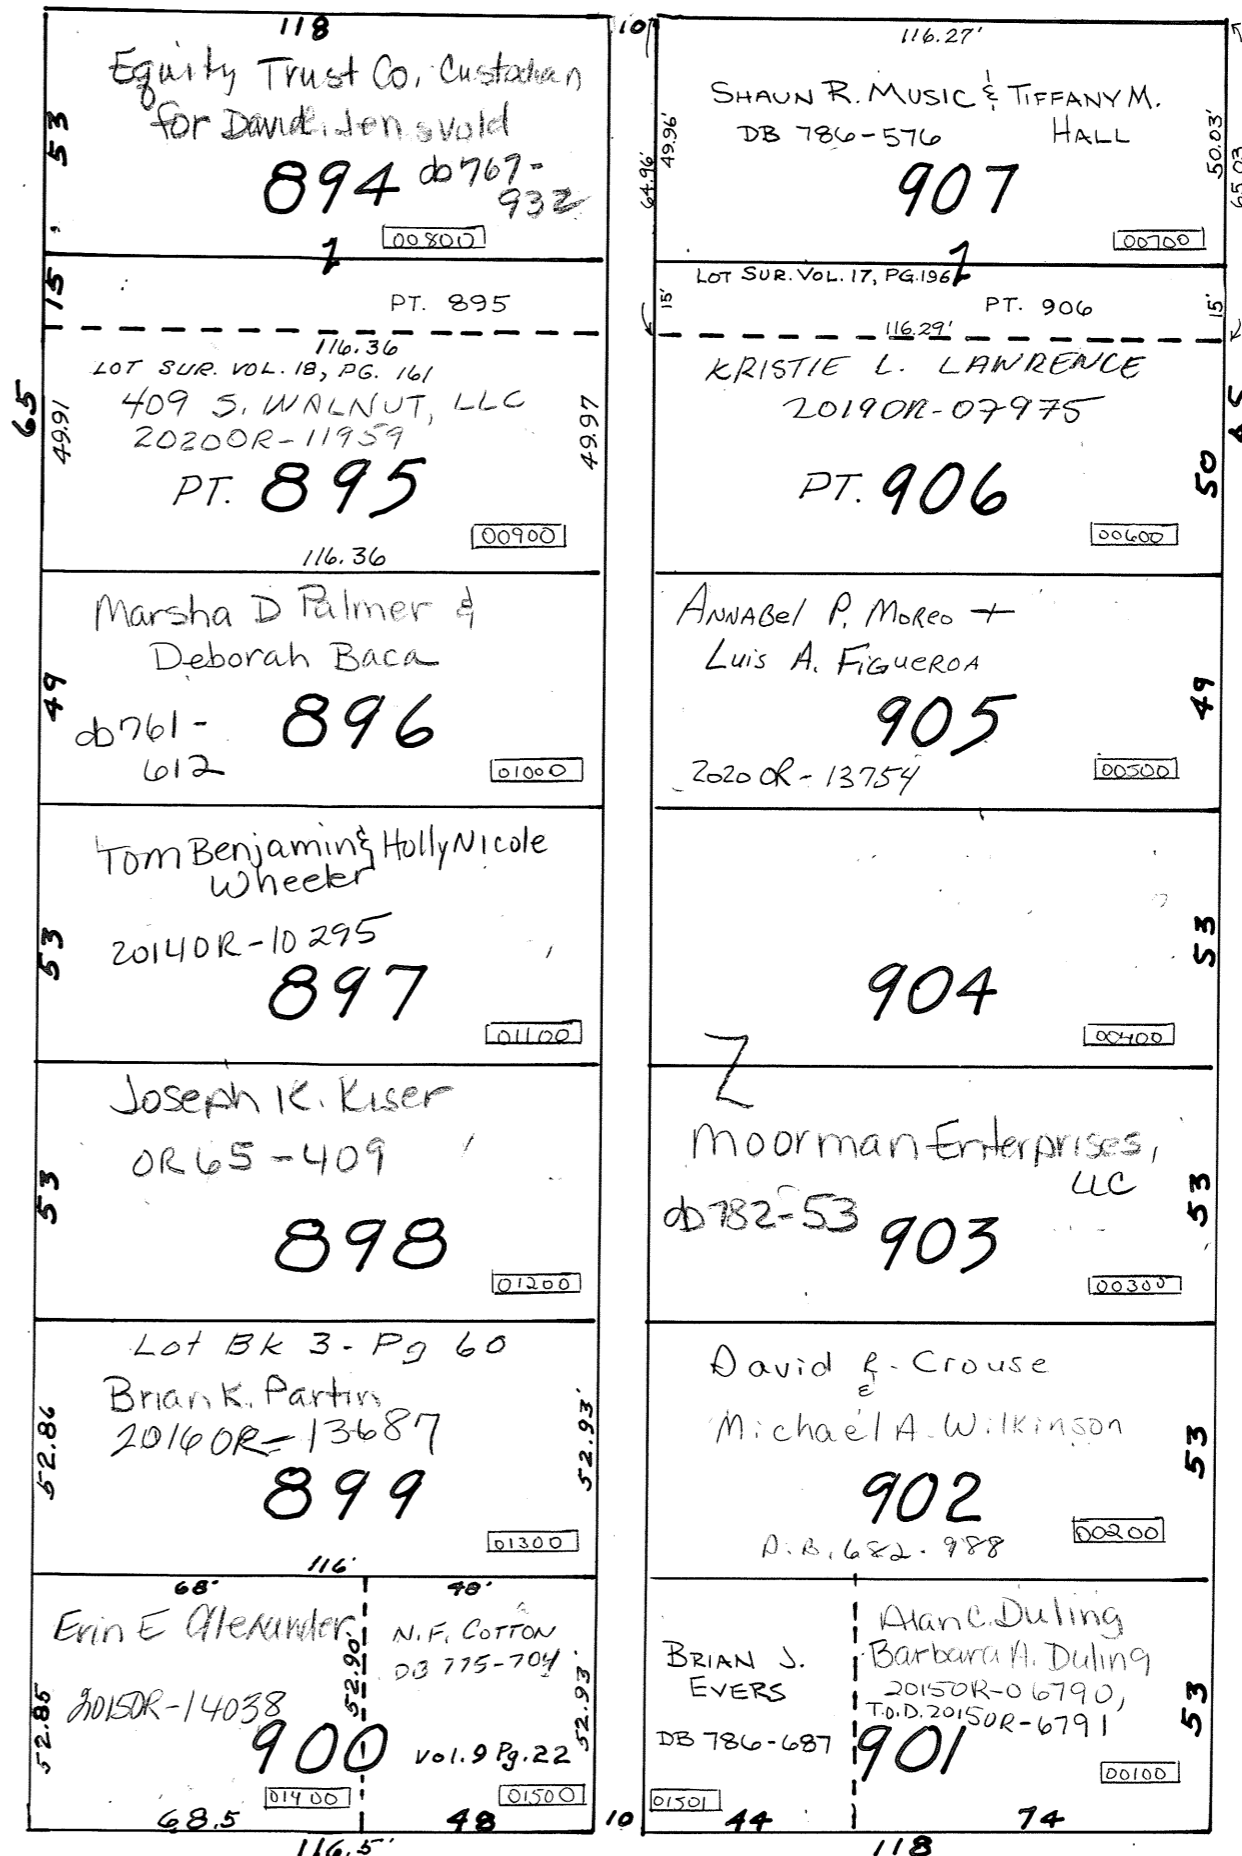 118
Equity Trust Co. Custodian
for David Jensvold
53
894 db767-
932
00800
1
15
PT. 895
116.36
LOT SUR. VOL. 18, PG. 161
409 S. WALNUT, LLC
2020OR-11959
65
49.91
49.97
PT. 895
00900
116.36
Marsha D Palmer &
Deborah Baca
49
db761-
612
896
01000
Tom Benjamin & Holly Nicole
Wheeler
53
2014OR-10295
897
01100
Joseph K. Kiser
OR65-409
53
898
01200
Lot Bk 3 - Pg 60
Brian K. Partin
2016OR-13687
52.86
52.93'
899
01300
116'
68'
48'
Erin E Alexander
N.F. COTTON
DB 775-704
52.85
52.90'
52.93'
2015OR-14038
900
Vol. 9 Pg. 22
01400
01500
68.5
48
116.5'
10
116.27'
SHAUN R. MUSIC & TIFFANY M.
HALL
DB 786-576
64.96'
49.96'
50.03'
65.03
907
00700
1
LOT SUR. VOL. 17, PG. 196
15'
PT. 906
15'
116.29'
KRISTIE L. LAWRENCE
2019OR-07975
PT. 906
50
00600
ANNABEL P. MOREO +
LUIS A. FIGUEROA
905
49
2020OR-13754
00500
53
904
00400
2
Moorman Enterprises,
LLC
db782-53
903
53
00300
David R. Crouse
&
Michael A. Wilkinson
902
53
D.B. 682-988
00200
BRIAN J.
EVERS
DB 786-687
Alan C. Duling
Barbara A. Duling
2015OR-06790,
T.O.D. 2015OR-6791
901
53
00100
01501
10
44
74
118